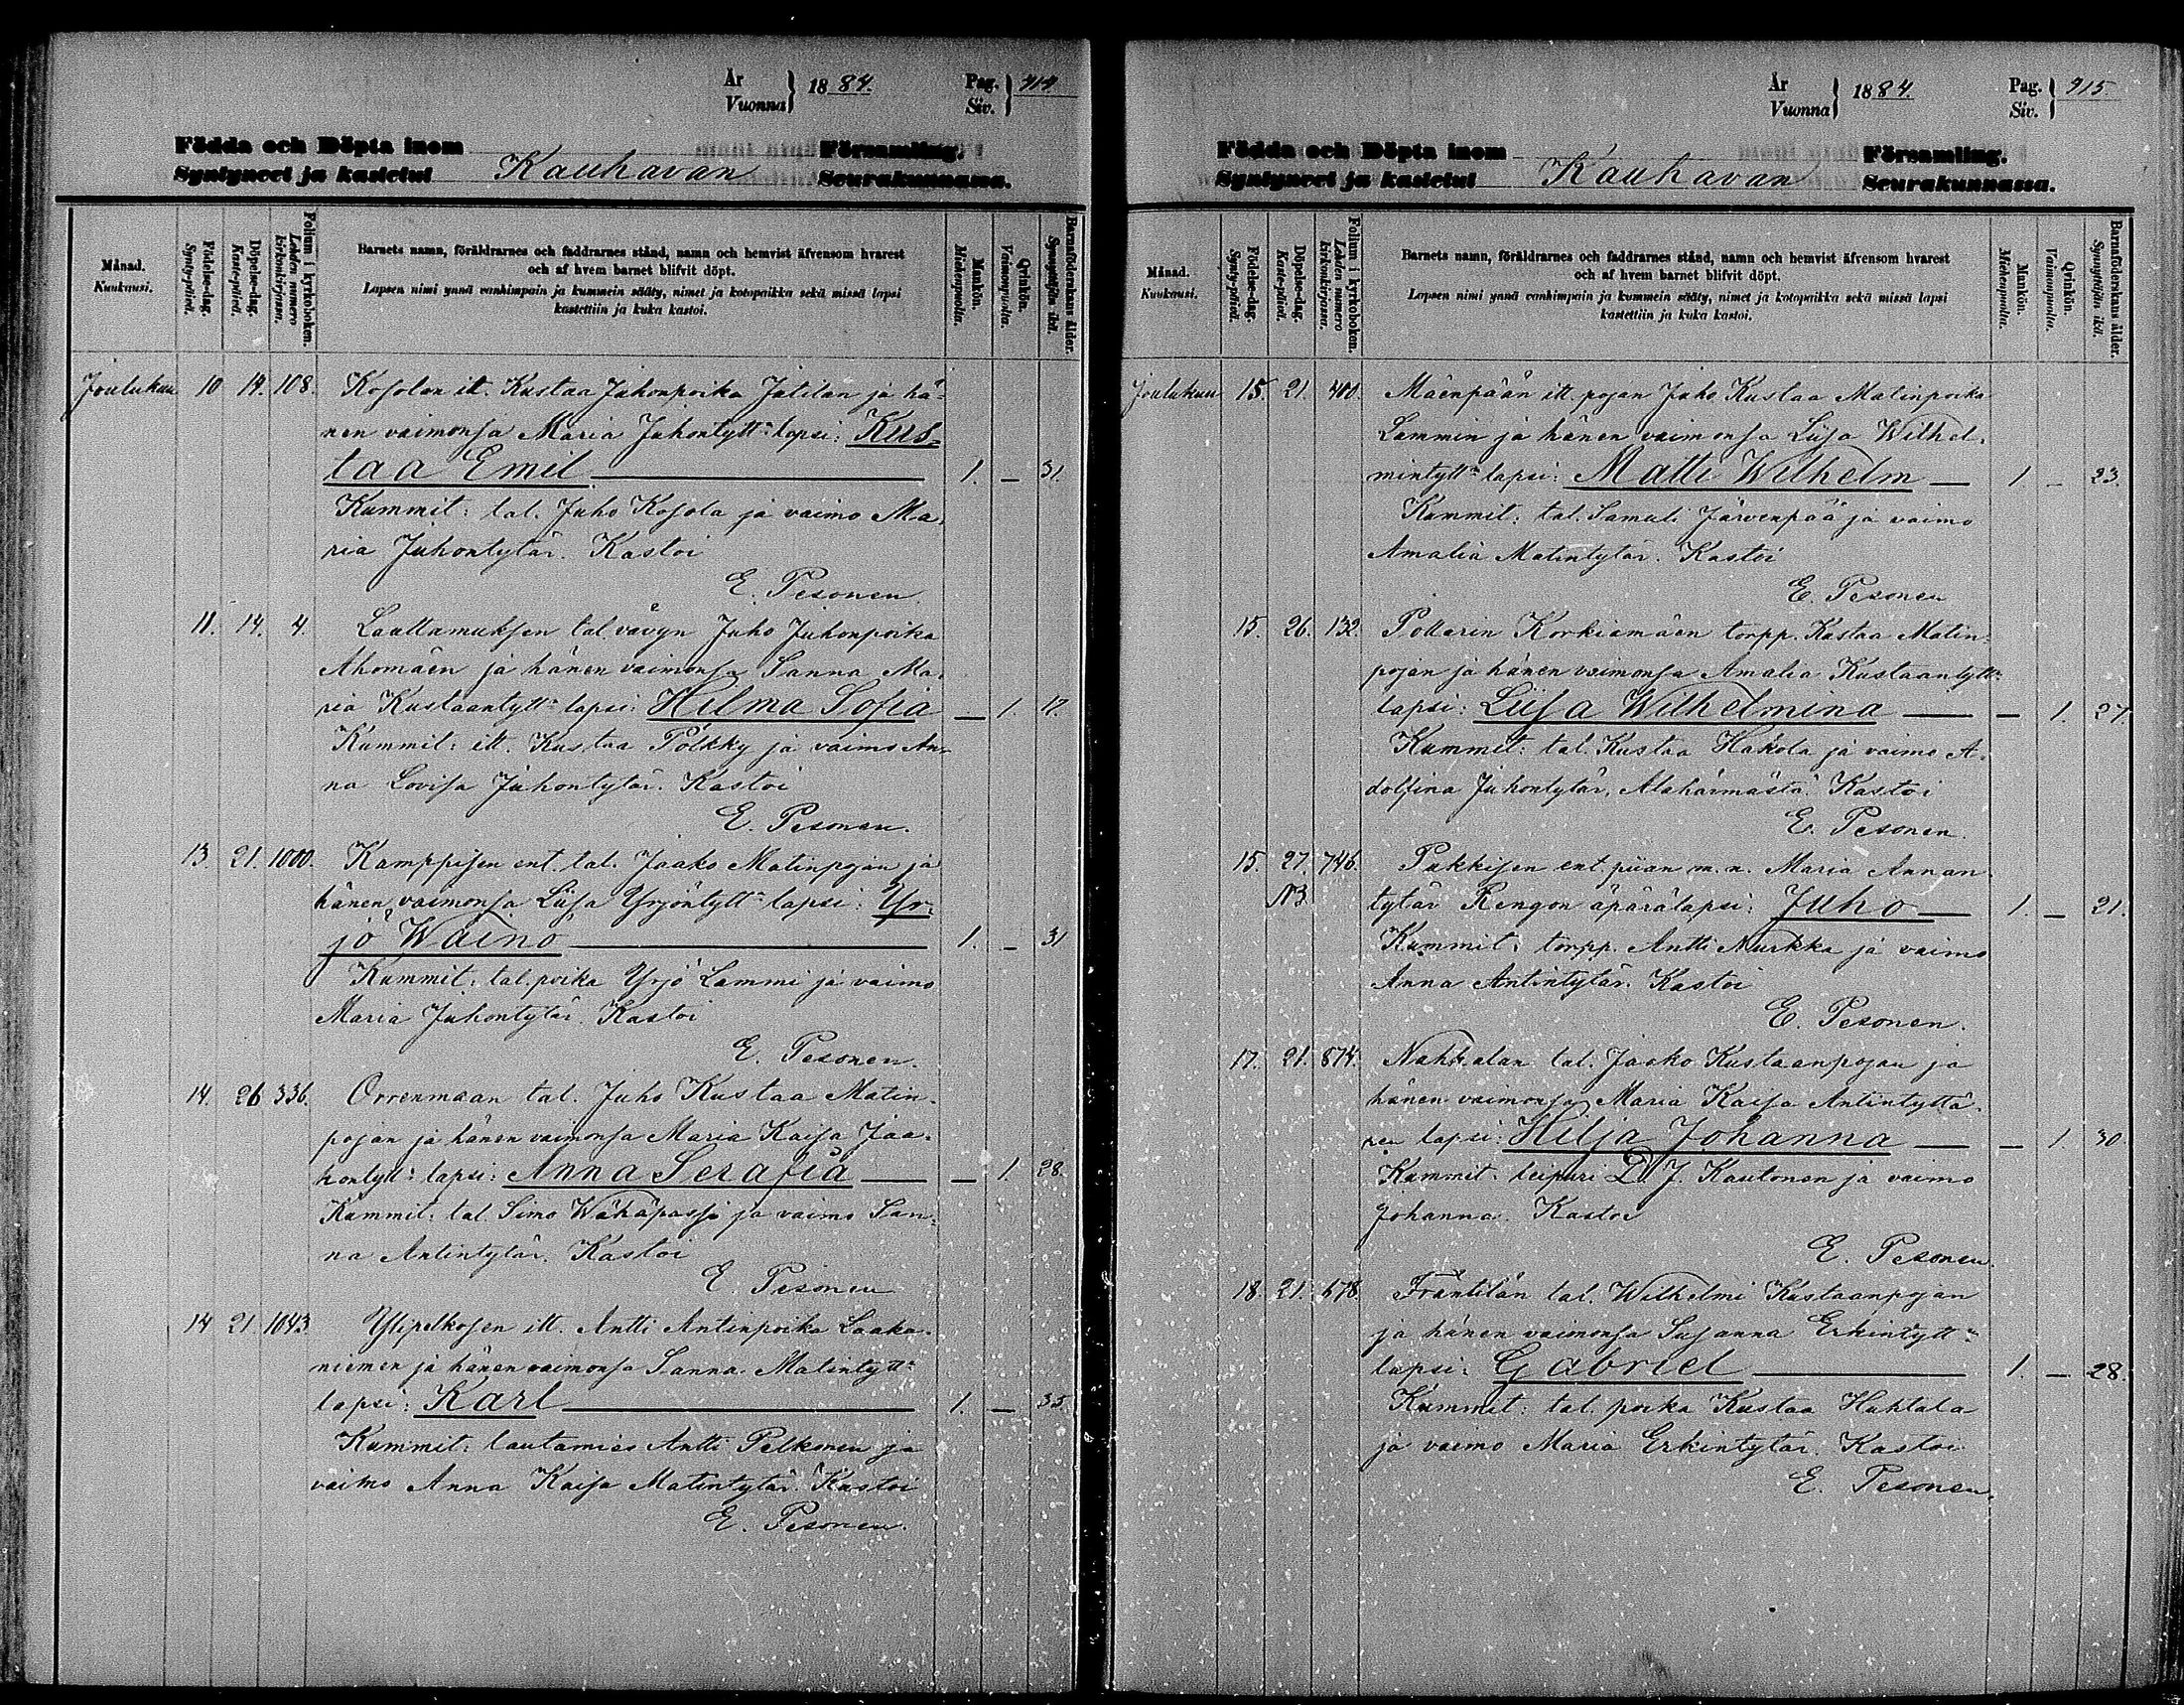 År
Vuonna } 1884.
Pag.
Siv. } 414
Födda och Döpta inom
Syntyneet ja kastetut Kauhavan
Församling.
Seurakunnassa.
Månad.
Kuukausi.
Födelse-dag.
Synty-päivä.
Döpelse-dag.
Kaste-päivä.
Folium i kyrkoboken.
Lehden numero
kirkonkirjassa.
Barnets namn, föräldrarnes och faddrarnes stånd, namn och hemvist äfvensom hvarest
och af hvem barnet blifvit döpt.
Lapsen nimi ynnä vanhimpain ja kummein sääty, nimet ja kotopaikka sekä missä lapsi
kastettiin ja kuka kastoi.
Mankön.
Miehenpuolia.
Qvinkön.
Vaimonpuolia.
Barnaföderskans ålder.
Synnyttäjän ikä.
Joulukuu 10 14. 108. Kosolan itt. Kustaa Juhonpoika Jätilan ja hä-
nen vaimonsa Maria Juhontytt:n lapsi: Kus-
taa Emil 1. — 31.
Kummit: tal. Juho Kosola ja vaimo Ma-
ria Juhontytär. Kastoi
E. Pesonen.
11. 14. 4. Laattamuksen tal. vävyn Juho Juhonpoika
Ahomäen ja hänen vaimonsa Sanna Ma-
ria Kustaantytt:n lapsi: Hilma Sofia — 1. 17.
Kummit: itt. Kustaa Pölkky ja vaimo An-
na Lovisa Juhontytär. Kastoi
E. Pesonen.
13 21. 1000. Kamppisen ent. tal. Jaako Matinpojan ja
hänen vaimonsa Liisa Yrjöntytt:n lapsi: Yr-
jö Wäinö 1. — 31
Kummit: tal. poika Yrjö Lammi ja vaimo
Maria Juhontytär. Kastoi
E. Pesonen.
14. 26 336. Orrenmaan tal. Juho Kustaa Matin-
pojan ja hänen vaimonsa Maria Kaisa Jaa-
kontytt:n lapsi: Anna Serafia — 1. 28.
Kummit: tal. Simo Wähäpassi ja vaimo San-
na Antintytär. Kastoi
E. Pesonen
14 21. 1043 Ylipelkosen itt. Antti Antinpoika Laaka-
niemen ja hänen vaimonsa Sanna Matintytt:n
lapsi: Karl 1. — 35.
Kummit: lautamies Antti Pelkonen ja
vaimo Anna Kaisa Matintytär. Kastoi
E. Pesonen.
År
Vuonna } 1884.
Pag.
Siv. } 415
Födda och Döpta inom
Syntyneet ja kastetut Kauhavan
Församling.
Seurakunnassa.
Månad.
Kuukausi.
Födelse-dag.
Synty-päivä.
Döpelse-dag.
Kaste-päivä.
Folium i kyrkoboken.
Lehden numero
kirkonkirjassa.
Barnets namn, föräldrarnes och faddrarnes stånd, namn och hemvist äfvensom hvarest
och af hvem barnet blifvit döpt.
Lapsen nimi ynnä vanhimpain ja kummein sääty, nimet ja kotopaikka sekä missä lapsi
kastettiin ja kuka kastoi.
Mankön.
Miehenpuolia.
Qvinkön.
Vaimonpuolia.
Barnaföderskans ålder.
Synnyttäjän ikä.
Joulukuu 15. 21. 400. Mäenpään itt. pojan Juho Kustaa Matinpoika
Lammin ja hänen vaimonsa Liisa Wilhel-
mintytt:n lapsi: Matti Wilhelm — 1 — 23.
Kummit: tal. Samuli Järvenpää ja vaimo
Amalia Matintytär. Kastoi
E. Pesonen
15. 26. 132. Pollarin Korkiamäen torpp. Kustaa Matin-
pojan ja hänen vaimonsa Amalia Kustaantytt:n
lapsi: Liisa Wilhelmina — 1. 27
Kummit: tal. Kustaa Hakola ja vaimo A-
dolfina Juhontytär, Alahärmästä. Kastoi
E. Pesonen.
15. 27. 746. Pukkisen ent. piian m. n. Maria Annan
NB. tytär Rengon äpärälapsi: Juho — 1. — 21.
Kummit: torpp. Antti Murkka ja vaimo
Anna Antintytär. Kastoi
E. Pesonen.
17. 21. 874. Nahkalan tal. Jaako Kustaanpojan ja
hänen vaimonsa Maria Kaisa Antintyttä-
ren lapsi: Hilja Johanna — 1 30
Kummit: leipuri D. J. Kautonen ja vaimo
Johanna. Kastoi
E. Pesonen.
18. 21. 678 Fräntilän tal. Wilhelmi Kustaanpojan
ja hänen vaimonsa Susanna Erkintytt:n
lapsi: Gabriel 1. — 28.
Kummit: tal. poika Kustaa Huhtala
ja vaimo Maria Erkintytär. Kastoi
E. Pesonen.